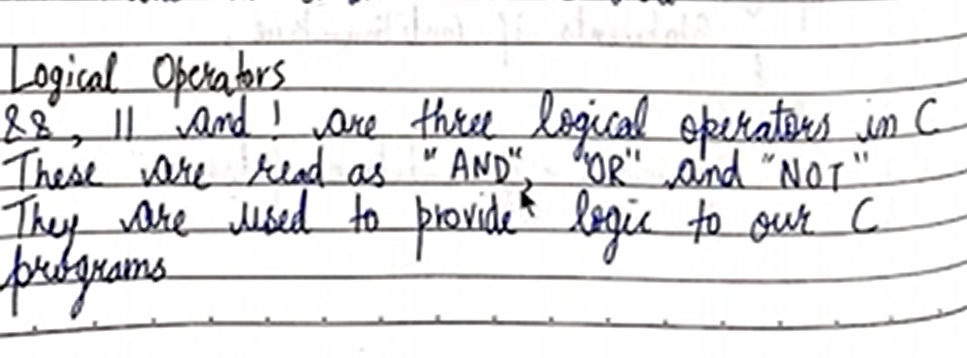 Logical Operators
&&, || and ! are three logical operators in C
These are read as "AND", "OR" and "NOT"
They are used to provide logic to our C
programs